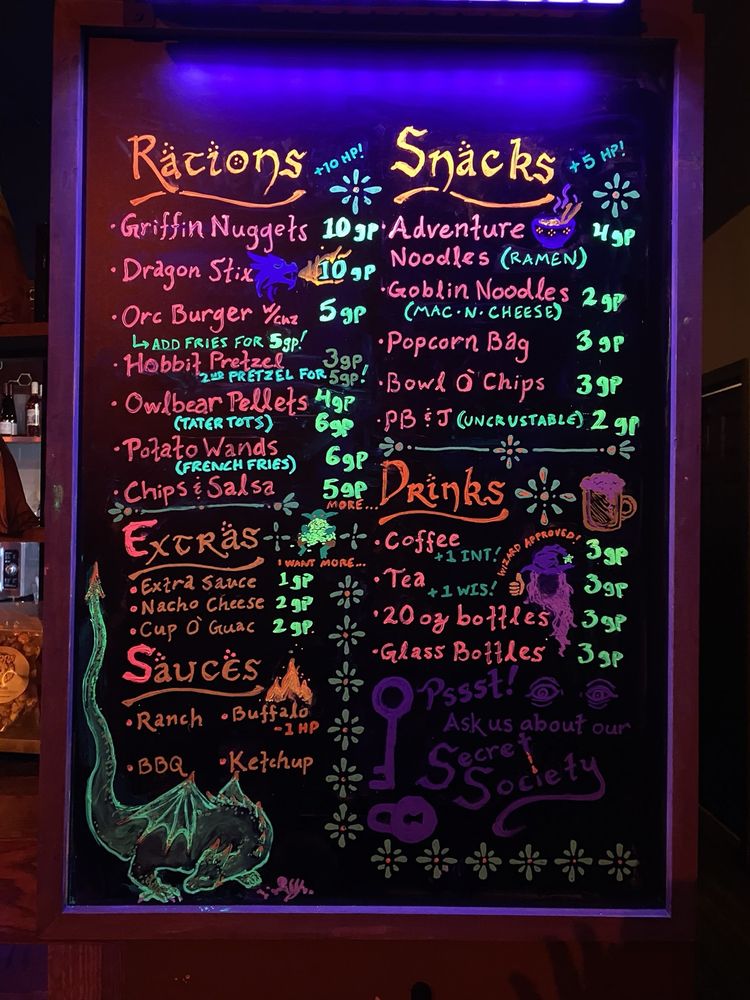 Rations +10 HP!
· Griffin Nuggets 10gp
· Dragon Stix 10gp
· Orc Burger w/chz 5gp
↳ ADD FRIES FOR 5gp!
· Hobbit Pretzel 3gp
2ND PRETZEL FOR 5gp!
· Owlbear Pellets 4gp
(TATER TOTS) 6gp
· Potato Wands
(FRENCH FRIES) 6gp
· Chips & Salsa 5gp
MORE...
Extras
I WANT MORE...
· Extra Sauce 1gp
· Nacho Cheese 2gp
· Cup O' Guac 2gp
Sauces
· Ranch · Buffalo
-1 HP
· BBQ · Ketchup
Snacks +5 HP!
· Adventure 4gp
Noodles (RAMEN)
· Goblin Noodles 2gp
(MAC·N·CHEESE)
· Popcorn Bag 3gp
· Bowl O' Chips 3gp
· PB & J (UNCRUSTABLE) 2gp
Drinks
· Coffee 3gp
+1 INT!
WIZARD APPROVED!
· Tea 3gp
+1 WIS!
· 20 oz bottles 3gp
· Glass Bottles 3gp
Pssst!
Ask us about our
Secret
Society